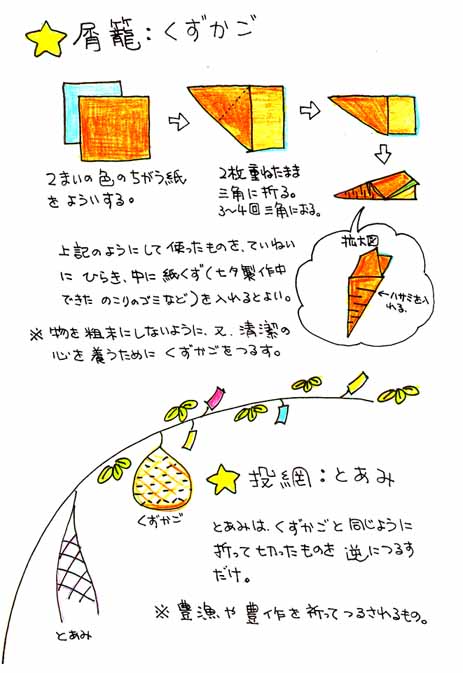 屑籠：くずかご
2まいの色のちがう紙
をよういする。
2枚重ねたまま
三角に折る。
3〜4回三角におる。
拡大図
←ハサミを入
れる。
上記のようにして使ったものを、ていねい
にひらき、中に紙くず(七夕製作中
できたのこりのゴミなど)を入れるとよい。
※物を粗末にしないように、又、清潔の
心を養うためにくずかごをつるす。
くずかご
投網：とあみ
とあみは、くずかごと同じように
折って切ったものを逆につるす
だけ。
※豊漁や豊作を祈ってつるされるもの。
とあみ